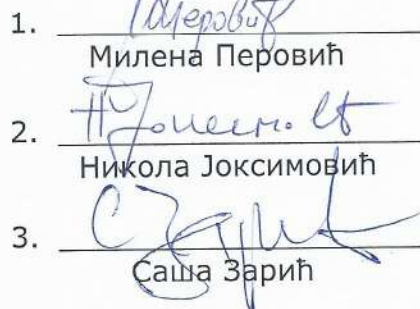 1.
Милена Перовић
2.
Никола Јоксимовић
3.
Саша Зарић